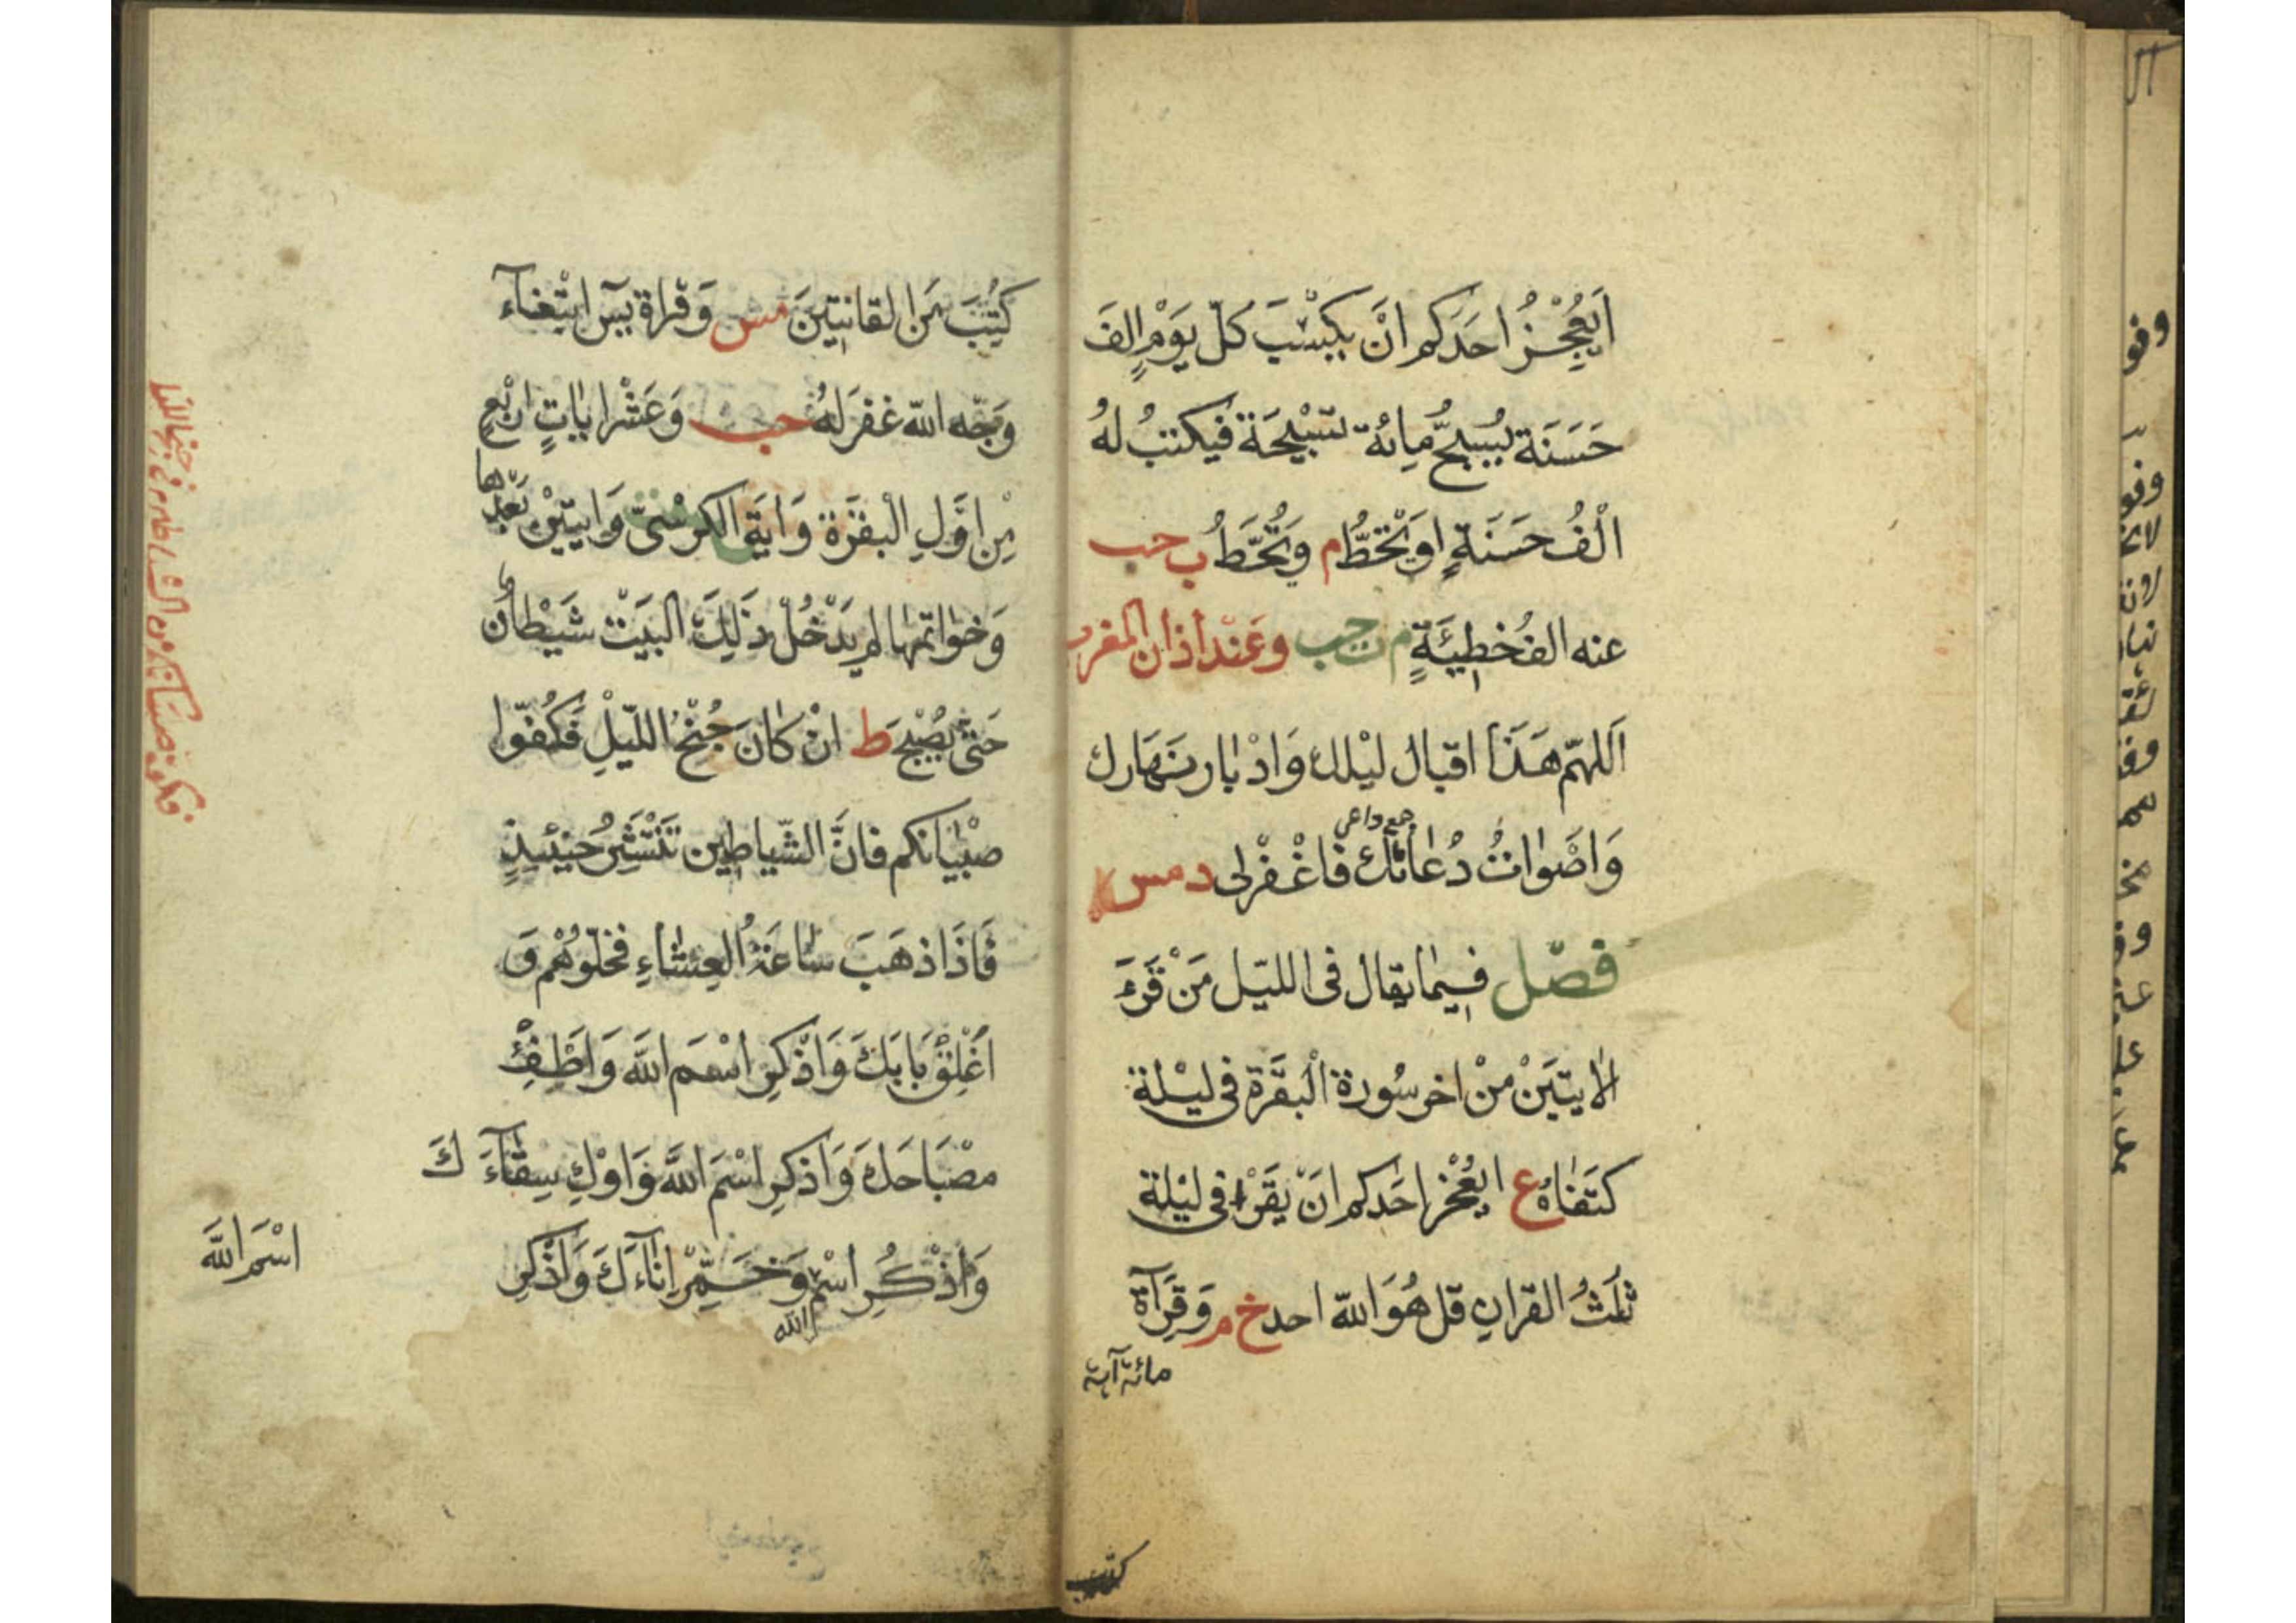 اَيَعْجِزُ احَدَكم اَنْ يكْسِبَ كلّ يَوْمٍ الفَ
حَسَنَة يُسَبحُّ مِائة تسْبيْحَة فيكتبُ لهُ
الْفُ حَسَنَةٍ اوَيُحْطُّ م وَيُحَطّ ب حب
عنه الفُ خطِيئَةٍ م ت حب وعَنْد اَذان المغرب
اَللهمّ هَذَا اقبال ليْلك وَادْبار نَهَارك
جمع داعي
وَاصْوات دُعاتك فاغْفرْلى د مس
فصْل فيما يقال فى الليّل مَنْ قَرَءَ
الايتيَنْ منْ اخر سُورة الْبقَرَة فى ليْلة
كتَفَاهُ ع ايعْجْز احَدكم انَ يَقَرْا فى ليْلة
ثلثُ القران قل هُوَ الله احد خ م وَقِرَآة
مائة آية
كتب
كُتِبَ مَن القانتِينَ مس وَقراة يسۤ ابتْغآء
وَجْه الله غفرَ لهُ حب وَعَشْر اياتٍ ارْبع
مِن اوَّلِ الْبقرَة وَايَة الكرسْىّ وَايتيْن بعَدها
وَخواتمها لم يدَخُلْ ذَلِكَ البيَتْ شيْطانٌ
حَتىّ يُصْبحَ ط ان كانَ جُنْحُ الليّلِ فكُفّوا
صبْيانكم فانَّ الشّياطِين تَنْتَشِرُ حَينئِذٍ
فَاذَا ذهَبَ سَاعَة العِشاءِ فخلّوهُمْ وَ
اَغْلِقْ بَابَكَ وَاذْكرِ اسْمَ الله وَاطْفِئْ
مصْبَاحَكَ وَاذكرِ اسْمَ الله وَاوْكِ سِقآءَ كَ
وَاذْكُرِ اسْم الله وَخَمِّرْ اناۤءَكَ وَاذْكرِ
اسْمَ الله